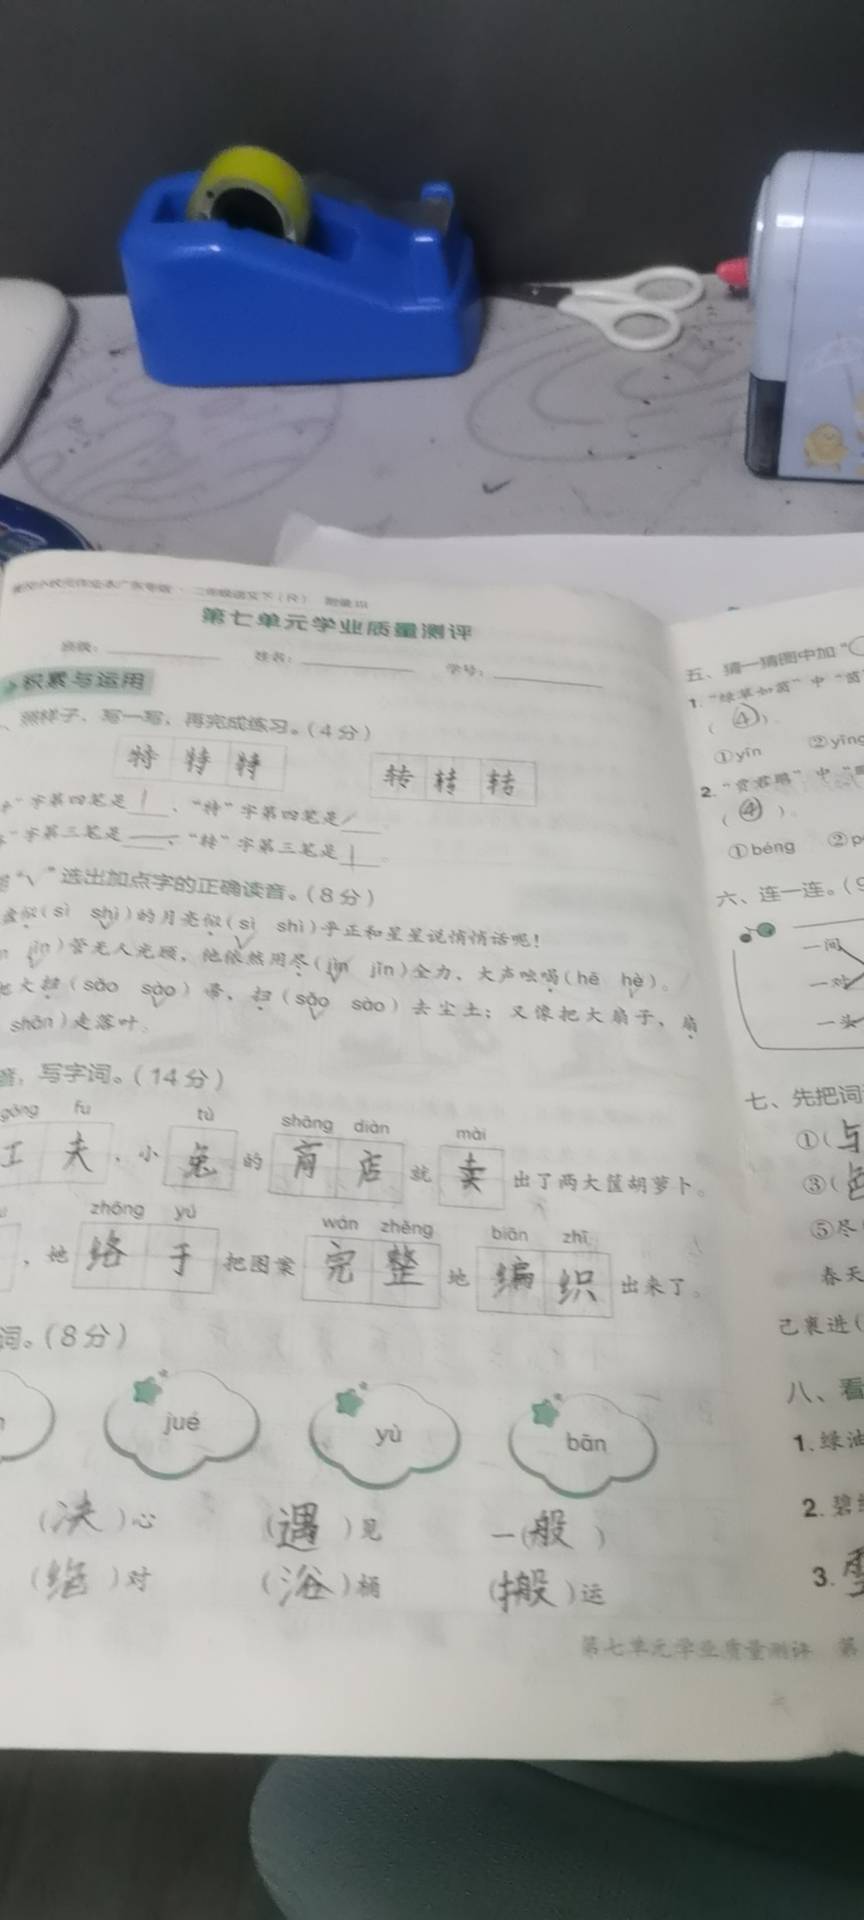 第七单元学业质量测评
班级：
姓名：
学号：
积累与运用
照样子，写一写，再完成练习。(4分)
特 特 特
转 转 转
字第四笔是丨、“特”字第四笔是
字第三笔是一、“转”字第三笔是丨
选出加点字的正确读音。(8分)
似(sì shì)的月亮似(sì shì)乎正和星星说悄悄话呢！
jìn)管无人光顾，他依然用尽(jìn jǐn)全力，大声吆喝(hē hè)。
把大扫(sǎo sào)帚，扫(sǎo sào)去尘土；又像把大扇子，扇
shān)走落叶。
音，写字词。(14分)
gōng fu tù shāng diàn mài
工夫，小兔的商店就卖出了两大筐胡萝卜。
zhōng yú wán zhěng biān zhī
，她终于把图案完整地编织出来了。
词。(8分)
jué yù bān
(决)心 (遇)见 一(般)
(绝)对 (浴)桶 (搬)运
第七单元学业质量测评 第
五、猜一猜图中加“
(④)
①yīn ②yīng
(④)
①béng
六、连一连。(
一间
一对
一头
七、先把词
①(与
③(色
⑤尽
春天
己裹进(
八、看
1.绿油
2.碧
3.